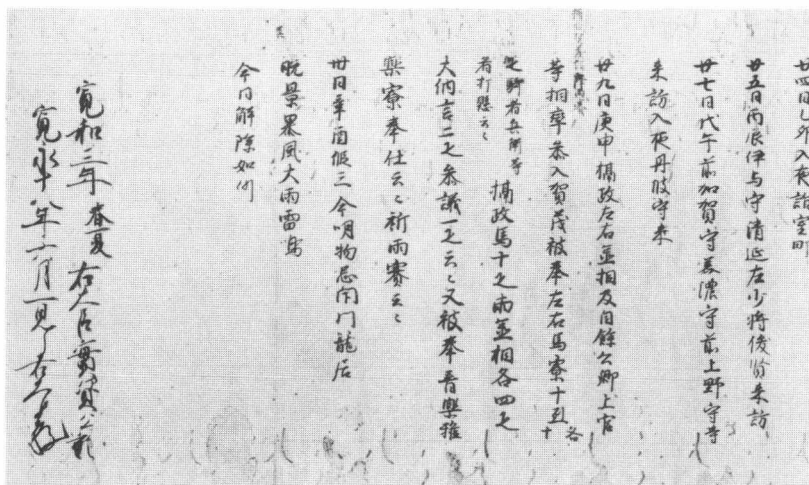 廿四日乙卯入夜詣室町
廿五日丙辰伊与守清延左少将俊賢来訪
廿七日戊午前加賀守美濃守前上野守等
来訪入夜丹波守来
廿九日庚申摂政左右丞相及自餘公卿上官
等相率参入賀茂被奉左右馬寮十疋各十
走馬者兵衛等
着打懸云々
摂政馬十疋両丞相各四疋
大納言二疋参議一疋云々又被奉音楽雅
楽寮奉仕云々祈雨賽云々
卅日辛酉假三今明物忌閇門籠居
晩景暴風大雨雷鳴
今日解除如例
寛和三年 春夏 右大臣實資公記
寛永八年六月一見了右大